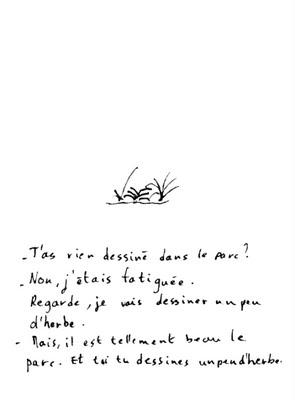 - T'as rien dessiné dans le parc ?
- Non, j'étais fatiguée.
Regarde, je vais dessiner un peu
d'herbe.
- Mais, il est tellement beau le
parc. Et toi tu dessines un peu d'herbe.